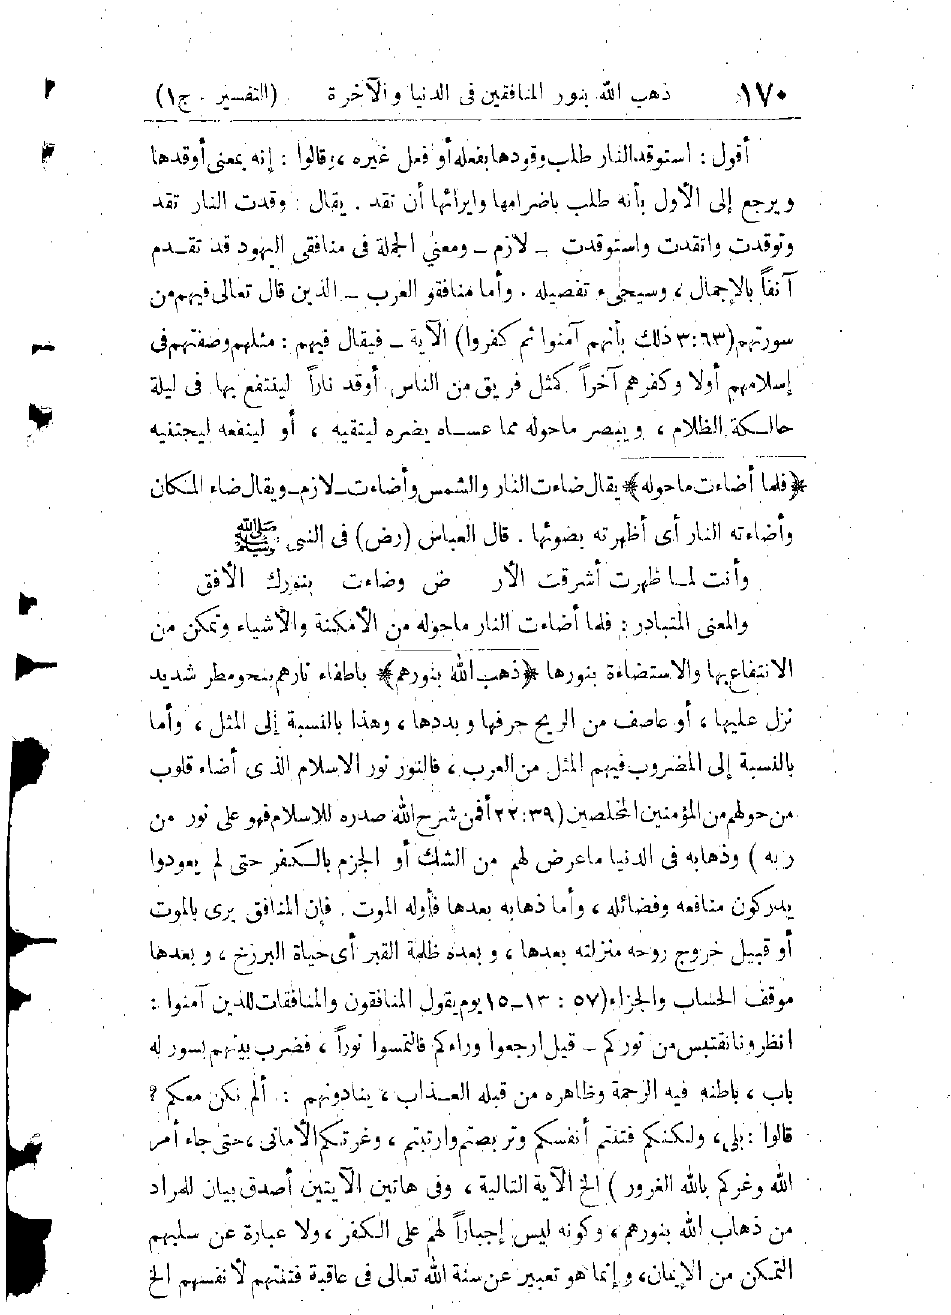 ١٧٠ ذهب الله بنور المنافقين فى الدنيا والآخرة . (التفسير . ج١)
أقول : استوقد النار طلب وقودها بفعله أو فعل غيره ، وقالوا : إنه بمعنى أوقدها
ويرجع إلى الأول بأنه طلب باضرامها وايرائها أن تقد . يقال : وقدت النار تقد
وتوقدت واتقدت واستوقدت – لازم – ومعنى الجملة فى منافقى اليهود قد تقـدم
آنفاً بالإجمال ، وسيجىء تفصيله . وأما منافقو العرب – الذين قال تعالى فيهم من
سورتهم (٣:٦٣ ذلك بأنهم آمنوا ثم كفروا) الآية – فيقال فيهم : مثلهم وصفتهم فى
إسلامهم أولا وكفرهم آخراً كمثل فريق من الناس أوقد ناراً لينتفع بها فى ليلة
حالـكة الظلام ، ويبصر ماحوله مما عسـاه يضره ليتقيه ، أو لينفعه ليجتنيه
﴿فلما أضاءت ماحوله﴾ يقال ضاءت النار والشمس وأضاءت – لازم – ويقال ضاء المكان
وأضاءته النار أى أظهرته بضوئها . قال العباس (رض) فى النبى ﷺ
وأنت لمـا ظهرت أشرقت الأر ض وضاءت بنورك الأفق
والمعنى المتبادر : فلما أضاءت النار ماحوله من الأمكنة والأشياء وتمكن من
الانتفاع بها والاستضاءة بنورها ﴿ذهب الله بنورهم﴾ باطفاء نارهم بنحو مطر شديد
نزل عليها ، أو عاصف من الريح جرفها وبددها ، وهذا بالنسبة إلى المثل ، وأما
بالنسبة إلى المضروب فيهم المثل من العرب ، فالنور نور الاسلام الذى أضاء قلوب
من حولهم من المؤمنين المخلصين (٢٢:٣٩ أفمن شرح الله صدره للاسلام فهو على نور من
ربه ) وذهابه فى الدنيا ماعرض لهم من الشك أو الجزم بالـكفر حتى لم يعودوا
يدركون منافعه وفضائله ، وأما ذهابه بعدها فأوله الموت . فإن المنافق يرى بالموت
أو قبيل خروج روحه منزلته بعدها ، وبعده ظلمة القبر أى حياة البرزخ ، وبعدها
موقف الحساب والجزاء (٥٧ : ١٣–١٥ يوم يقول المنافقون والمنافقات للذين آمنوا :
انظرونا نقتبس من نوركم – قيل ارجعوا وراءكم فالتمسوا نوراً ، فضرب بينهم بسور له
باب ، باطنه فيه الرحمة وظاهره من قبله العـذاب ، ينادونهم : ألم نكن معكم ؟
قالوا : بلى، ولـكنكم فتنتم أنفسكم وتربصتم وارتبتم ، وغرتـكم الأمانى ، حتى جاء أمر
الله وغركم بالله الغرور ) الخ الآية التالية ، وفى هاتين الآيتين أصدق بيان للمراد
من ذهاب الله بنورهم ، وكونه ليس إجباراً لهم على الـكفر ، ولا عبارة عن سلبهم
التمكن من الإيمان، وإنما هو تعبير عن سنة الله تعالى فى عاقبة فتنتهم لأنفسهم الخ